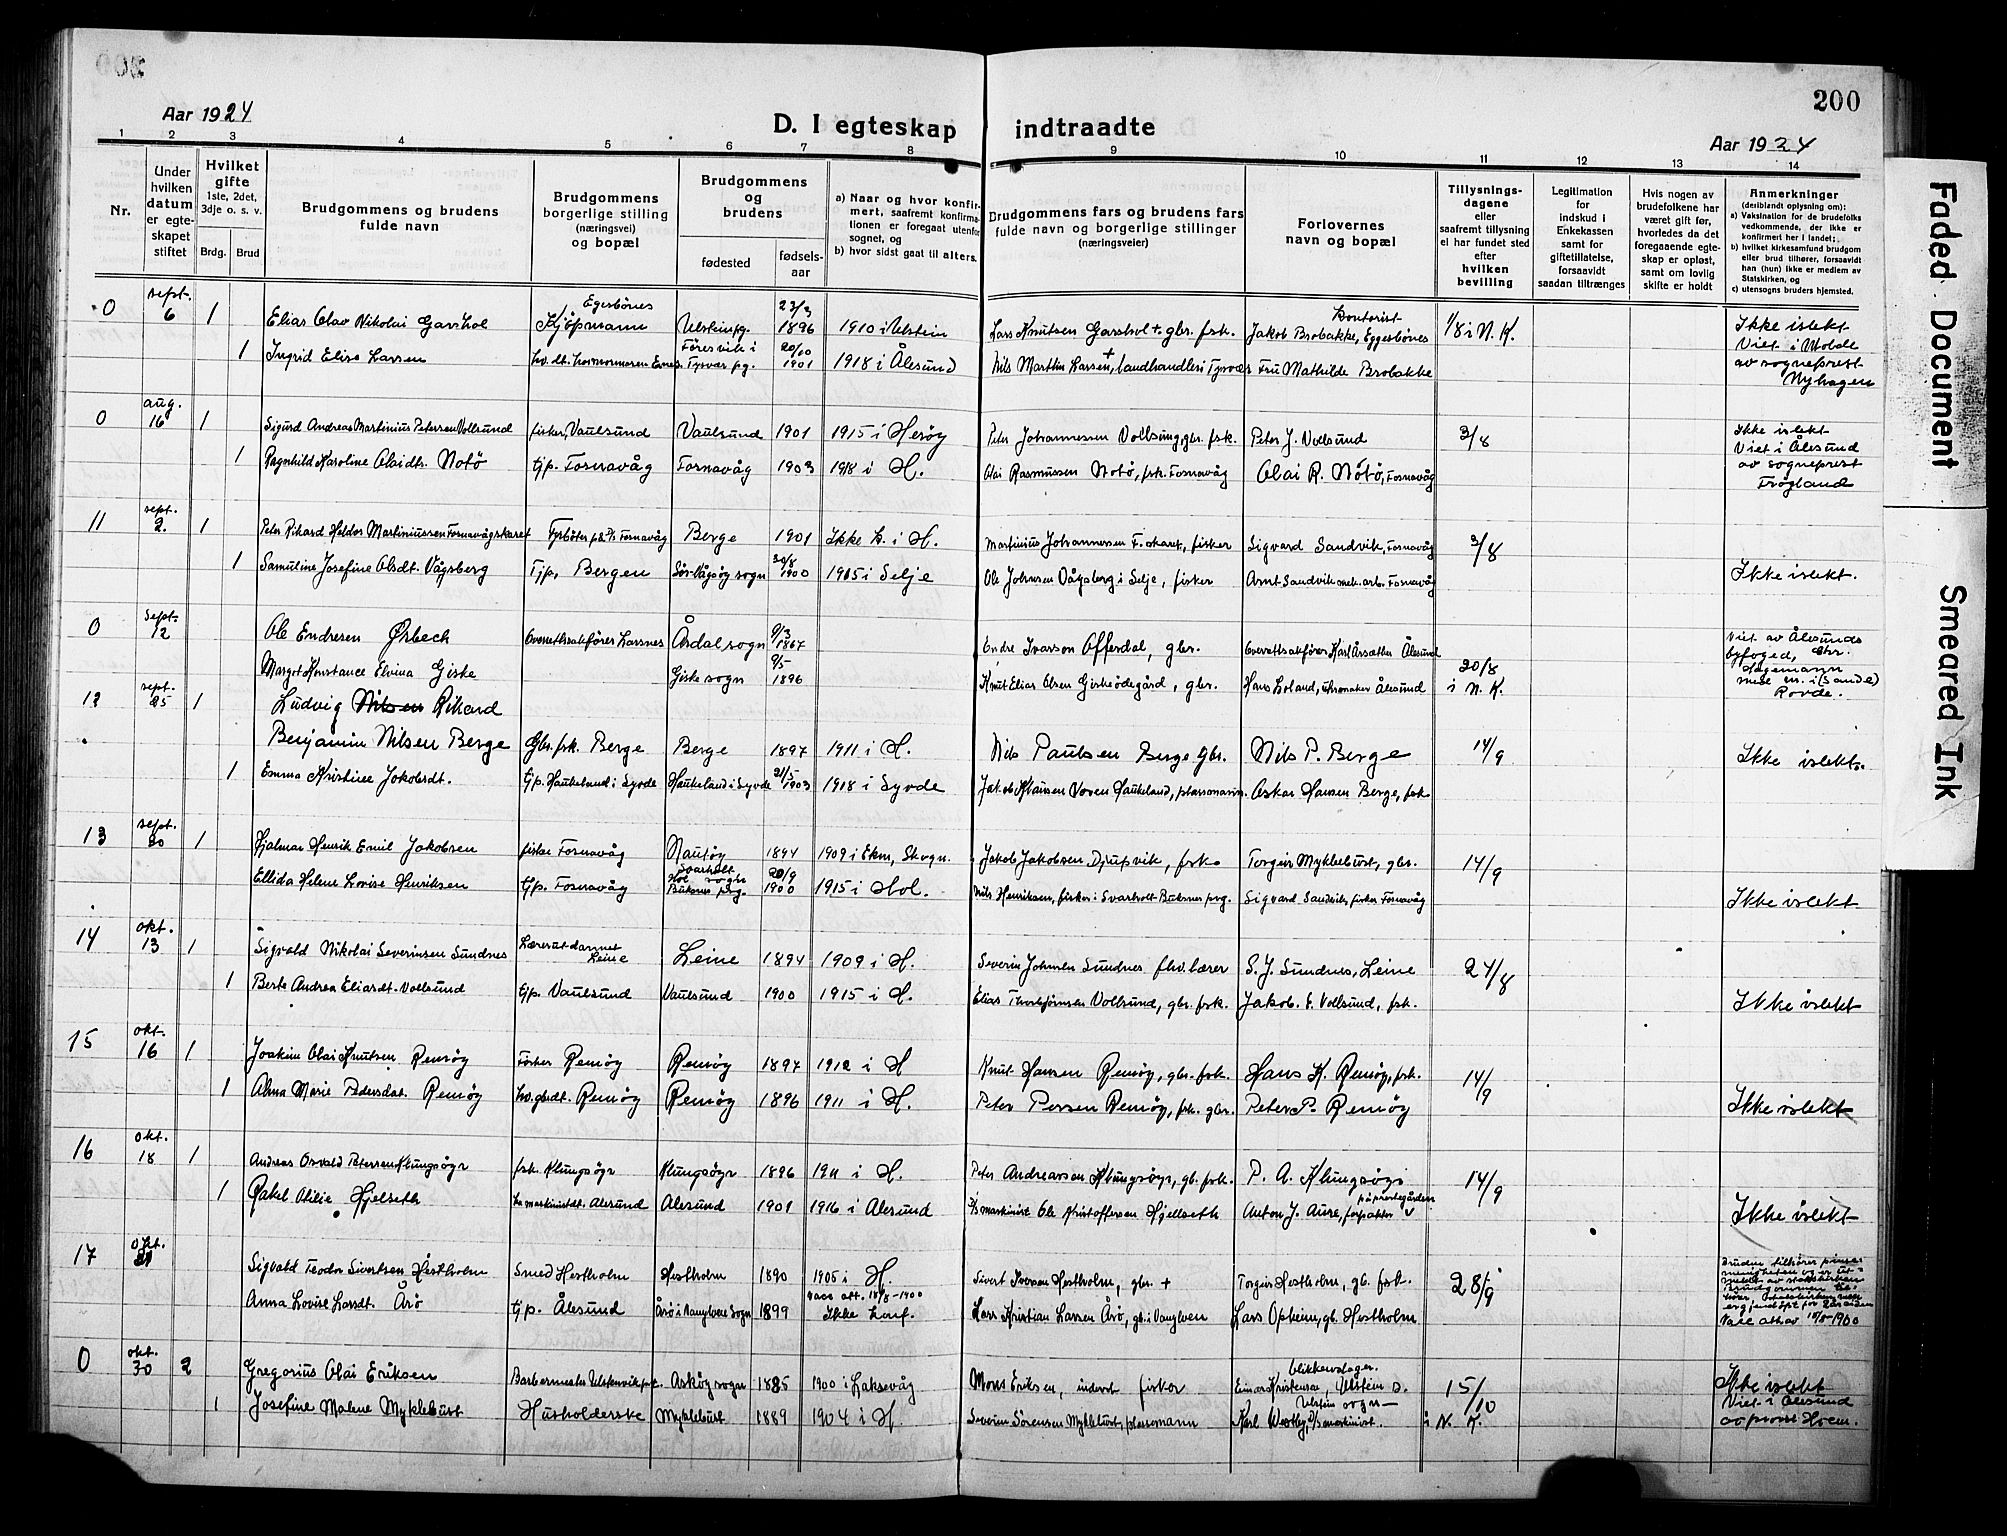 200
Aar 1924
D. I egteskap indtraadte
Aar 1924
1 2 3 4 5 6 7 8 9 10 11 12 13 14
Nr.
Under hvilken datum er egteskapet stiftet
Hvilket gifte 1ste, 2det, 3dje o. s. v.
Brdg. Brud
Brudgommens og brudens fulde navn
Brudgommens borgerlige stilling (næringsvei) og bopæl
Brudgommens og brudens
fødested
fødselsaar
a) Naar og hvor konfirmert, saafremt konfirmationen er foregaat utenfor sognet, og
b) hvor sidst gaat til alters.
Brudgommens fars og brudens fars fulde navn og borgerlige stillinger (næringsveier)
Forlovernes navn og bopæl
Tillysningsdagene eller saafremt tillysning ei har fundet sted efter hvilken bevilling
Legitimation for indskud i Enkekassen samt for giftetillatelse, forsaavidt saadan tiltrænges
Hvis nogen av brudefolkene har været gift før, hvorledes da det foregaaende egteskap er opløst, samt om lovlig skifte er holdt
Anmerkninger (deriblandt oplysning om):
a) Vaksination for de brudefolks vedkommende, der ikke er konfirmert her i landet;
b) hvilket kirkesamfund brudgom eller brud tilhører, forsaavidt han (hun) ikke er medlem av Statskirken, og
c) utensogns bruders hjemsted.
0 sept. 6 1 Elias Olav Nikolai Garshol Egesbönes Kjöpmann Ulstein pg. 23/3 1896 1910 i Ulstein Lars Knutsen Garshol + gbr. fsk. Kontorist Jakob Brobakke, Eggesbönes 1/8 i N. K. Ikke i slekt
1 Ingrid Elise Larsen Föresvik i Tysvær pg. 20/10 1901 1918 i Ålesund Nils Marthin Larsen, + landhandler i Tysvær Fru Mathilde Brobakke Viet i Molde av sogneprest Nyhagen
0 aug. 16 1 Sigurd Andreas Martinius Petersen Vollsund fisker, Vaulsund Vaulsund 1901 1915 i Heröy Peter Johannessen Vollsund, gbr. fsk. Peter J. Vollsund 3/8 Ikke i slekt
1 Ragnhild Karoline Olaidtr. Notö tjp. Fosnavåg Fosnavåg 1903 1918 i H. Olai Rasmussen Notö, fsk. Fosnavåg Olai R. Nötö, Fosnavåg Viet i Ålesund av sogneprest Frögland
11 sept. 2. 1 Peter Rikard Heldor Martiniussen Fosnavågskaret Fyrböter på D/s Fosnavåg Berge 1901 Ikke k. i H. Martinius Johannessen F. skaret, fisker Sigvard Sandvik, Fosnavåg 3/8
1 Samuline Josefine Olsdt. Vågsberg Tjp, Bergen Sör-Vågsöy sogn 30/8 1900 1915 i Selje Ole Johnsen Vågsberg i Selje, fisker Arnt Sandvik mek. arb. Fosnavåg Ikke i slekt.
0 Sept. 12 Ole Endresen Ørbech Overrettssakfører Larsnes Årdal sogn 9/3 1867 Endre Ivarson Offerdal, gbr. Overrettssakfører Karl Aarsæther Ålesund Viet av Ålesunds byfoged, Chr. Hagemann
Margot Konstance Elvina Giske Giske sogn 9/5 1896 Knut Elias Olsen Giskeödegård, gbr. Hans Loland, urmaker Ålesund 20/8 i N. K. i (Sande) Rovde.
12 sept. 25 1 Ludvig Nilsen Rikard
Benjamin Nilsen Berge Gbr. fsk. Berge Berge 1897 1911 i H. Nils Paulsen Berge Gbr. Nils P. Berge 14/9 Ikke i slekt.
1 Emma Kristine Jakobsdt. tjp. Haukeland i Syvde Haukeland i Syvde 21/5 1903 1918 i Syvde Jakob Klausen Voren Haukeland, plassmann. Oskar Hansen Berge, fsk
13 sept. 30 1 Hjalmar Henrik Emil Jakobsen fisker Fosnavåg Nautöy 1894 1909 i Ekm, Skogn. Jakob Jakobsen Djupvik, fsk. Torgeir Myklebust, gbr. 14/9
Ellida Helene Lovise Henriksen tjp. Fosnavåg Svarholt Hol sogn Buksnes prg. 20/9 1900 1915 i Hol. Nils Henriksen, fisker i Svarholt Buksnes prg. Sigvard Sandvik, fisker Fosnavåg Ikke i slekt
14 okt. 13 1 Sigvald Nikolai Severinsen Sundnes Lærerutdannet Leine Leine 1894 1909 i H. Severin Johnsen Sundnes fhv. lærer S. J. Sundnes, Leine 24/8
1 Berte Andrea Eliasdt. Vollsund tjp. Vaulsund Vaulsund 1900 1915 i H. Elias Thorbjörnsen Vollsund, gbr. fsk. Jakob. E. Vollsund, fsk. Ikke i slekt
15 okt. 16 1 Joakim Olai Knutsen Remöy Fisker Remöy Remöy 1897 1912 i H Knut Hansen Remöy, gbr. fsk. Hans K. Remöy, fsk. 14/9
1 Alma Marie Pedersdat. Remöy hv. gbdt. Remöy Remöy 1896 1911 i H. Peter Persen Remöy, fsk. gbr. Peter P. Remöy Ikke i slekt
16 okt. 18 1 Andreas Osvald Petersen Klungsöyr fsk. Klungsöyr Klungsöyr 1896 1911 i H. Peter Andreassen Klungsöyr, gb. fsk. P. A. Klungsöyr 14/9
1 Rakel Otilie Hjelseth Ålesund Alesund 1901 1916 i Alesund D/s maskinist Ole Kristoffersen Hjellseth på prestegården Anton J. Aure, forpakter Ikke i slekt
17 okt. 21 Sigvald Teodor Sivertsen Hestholm Smed Hestholm Hestholm 1890 1905 i H. Sivert Iversen Hestholm, gbr. + Torgeir Hestholm, gb. fsk. 28/9 Bruden tilhører pinsemenigheten og er utmeldt av statskirken
Anna Lovise Larsdt. Årö tjp. Ålesund Årö i Vaagöy sogn 1899 vacc. att. 18/8-1900 Ikke konf. Lars Kristian Larsen Årö, gb. Lars Opheim, gb. Hestholm Vacc. att. av 18/8-1900
0 okt. 30 2 Gregorius Olai Eriksen Barbermester Ulsteinvik Asköy sogn 1885 1900 i Laksevåg Mons Eriksen, inderst fisker blikkenslager. Einar Kristensen, Ulstein s. 15/10 Ikke i slekt
1 Josefine Malene Myklebust Husholderske Myklebust 1889 1904 i H. Severin Sörensen Myklebust, plassmann Ulstein sogn - Karl Westby, D/s maskinist. i N. K. Viet i Ålesund av prost Hoem.
Faded Document
Smeared Ink